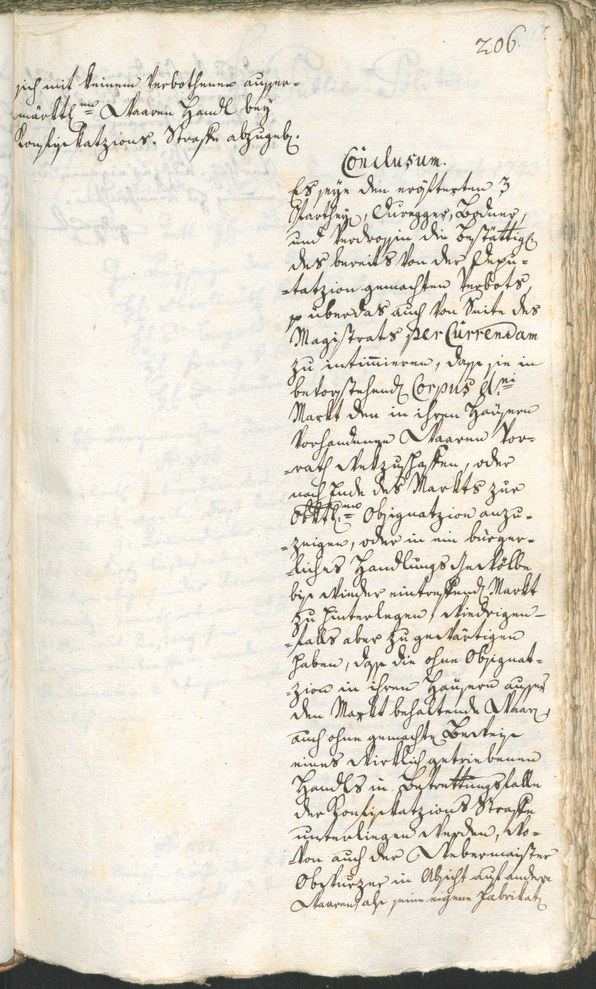 206
sich mit keinem verbothenen ausser-
märktl:en Waaren Handl bey
Konfiskatzions-Straffe abzugeb:
Conclusum.
Es seye den erösterten 3
Partheyen, Duregger, Bodner,
und Verdrossin die Bestättig:
des bereits von der Depu-
-tatzion gemachten Verbots,
überdas auch von Seite des
Magistrats per Currendam
zu intimieren, dass sie in
bevorstehend: Corpus X:ni
Markt den in ihren Haüsern
vorhandenen Waaren Vor-
-rath wekzuschaffen, oder
nach Ende des Markts zur
Obsignatzion anzu-
-zeigen, oder in ein bürger-
-liches Handlungs Gewölbe
bis wieder eintreffend: Markt
zu hinterlegen, wiedrigen-
-falls aber zu gewärtigen
haben, dass die ohne Obsignat-
-zion in ihren Haüsern ausser
den Markt behaltende Waar:
auch ohne gemachte Beweise
eines wirklich getriebenen
Handls in Betrettungsfalle
der Konfiskatzions Straffe
unterliegen werden, wo-
-von auch der Webermaister
Obkurzer in Absicht auf andere
Waaren, als seine eigene Fabrikat: